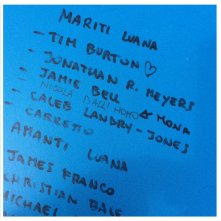 MARITI LUANA
- TIM BURTON ♡
- JONATHAN R. MEYERS
- JAMIE BELL
- CALEB LANDRY-JONES
CARRETTO
AMANTI LUANA
JAMES FRANCO
CHRISTIAN BALE
MICHAEL